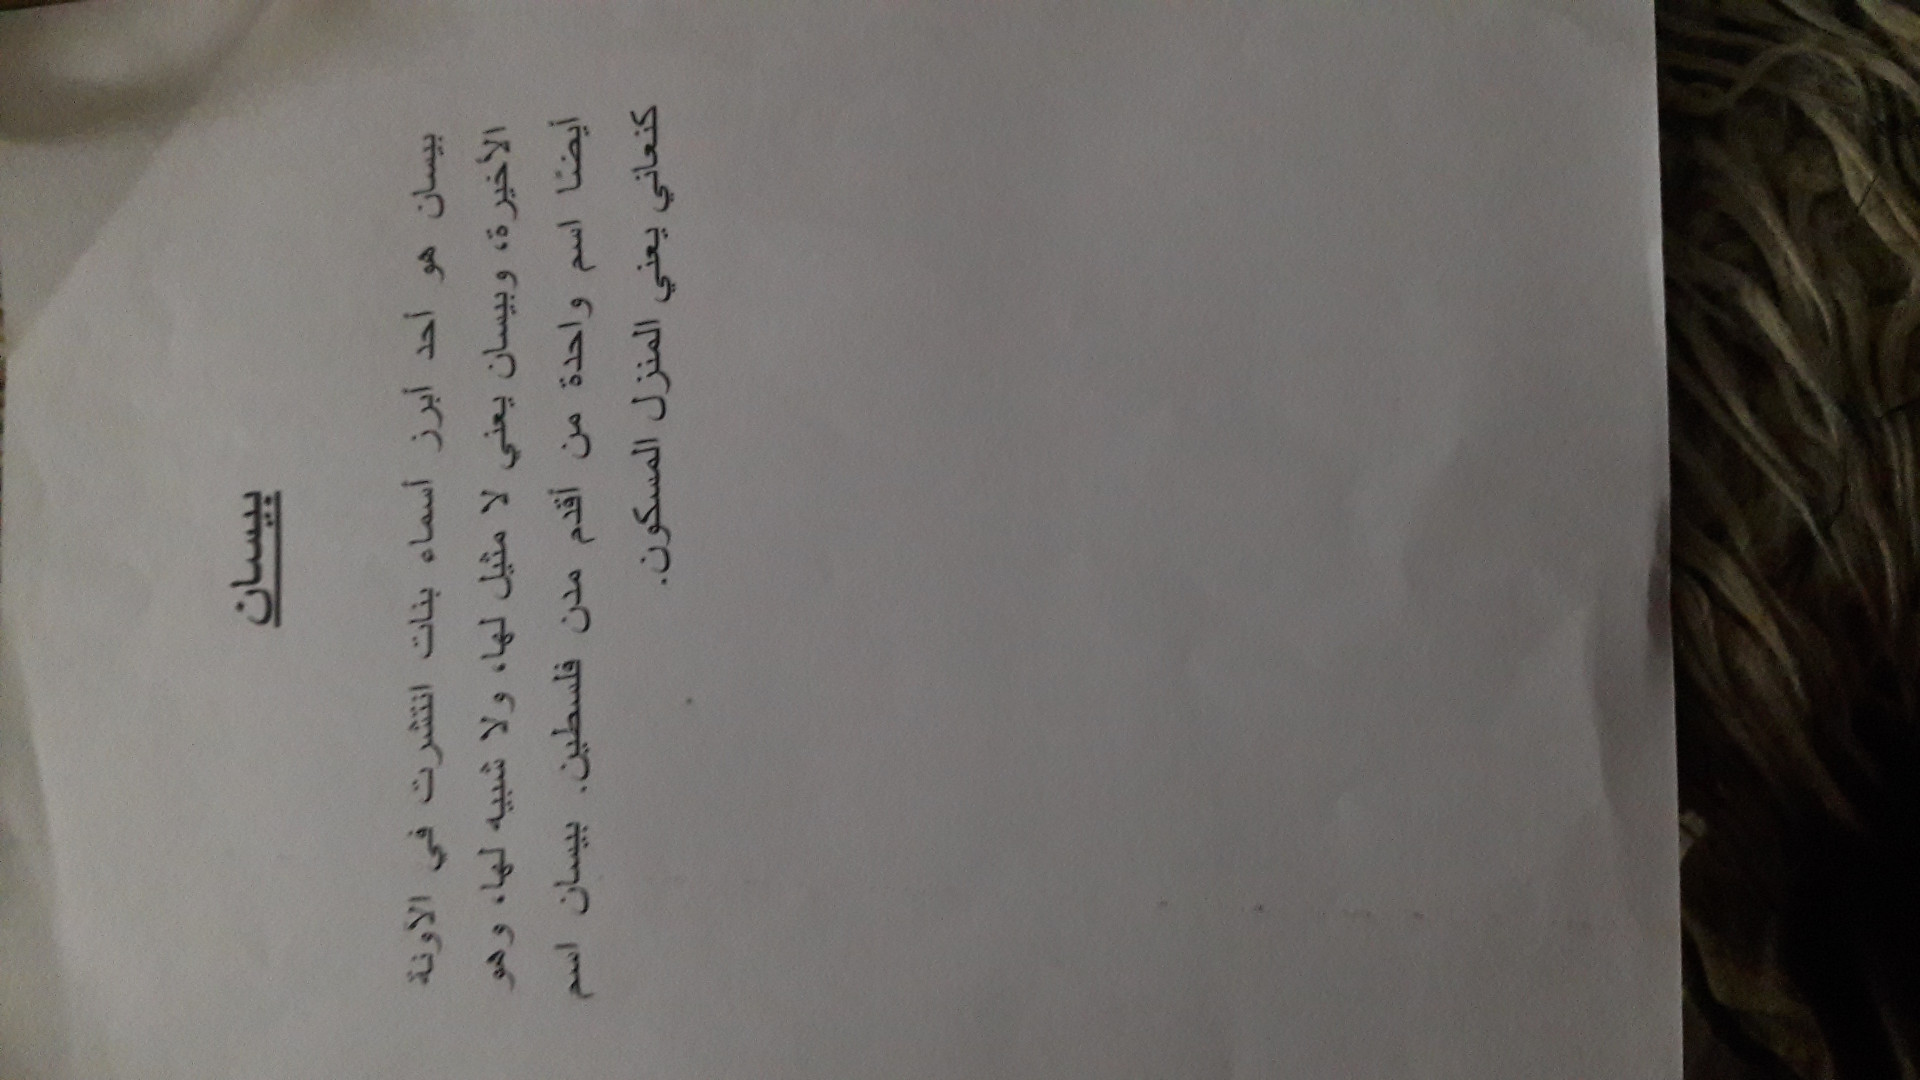 بيسان
بيسان هو أحد أبرز أسماء بنات انتشرت في الآونة
الأخيرة، وبيسان يعني لا مثيل لها، ولا شبيه لها، وهو
أيضًا اسم واحدة من أقدم مدن فلسطين. بيسان اسم
كنعاني يعني المنزل المسكون.